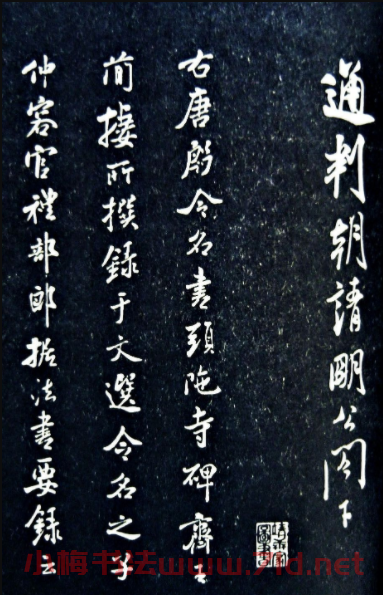 通判朝請明公閣下
右唐殷令名書頭陁寺碑齊王
簡棲所撰錄于文選令名之子
仲容官禮部郎据法書要錄云
小梅书法www.7ld.net